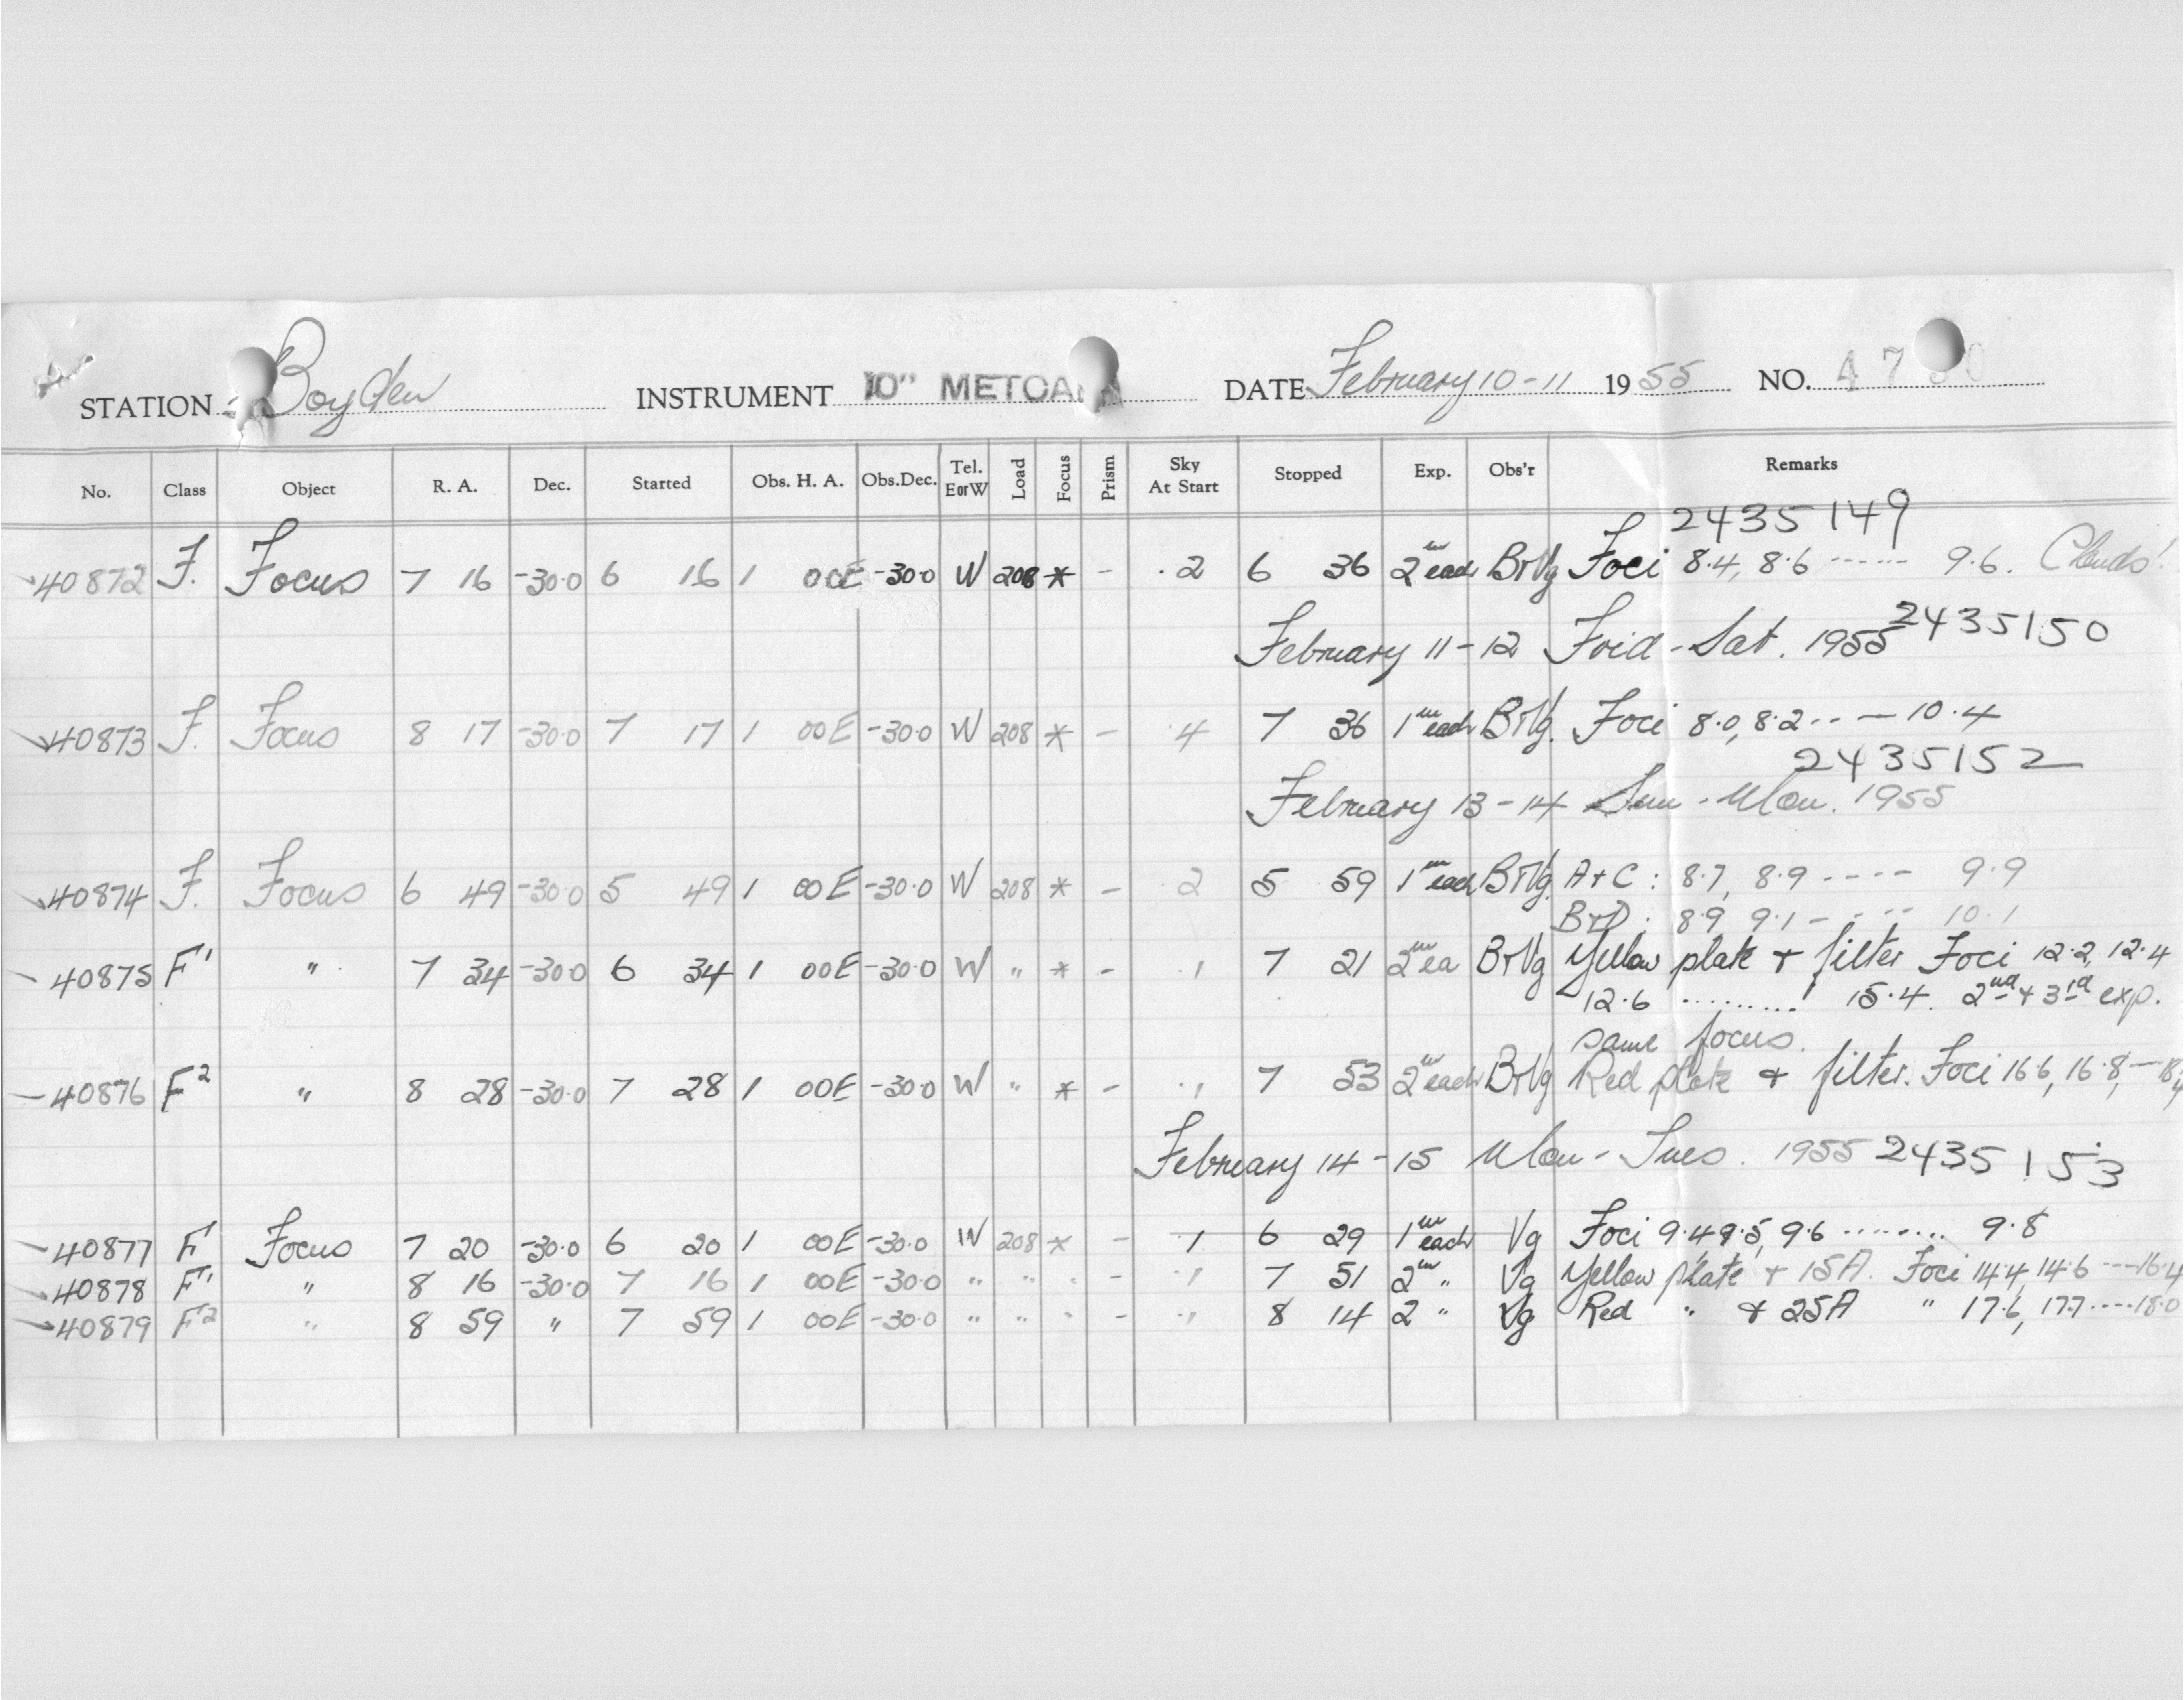 STATION Boyden INSTRUMENT 10" METCA DATE February 10-11 1955 NO. 47 0
No. Class Object R. A. Dec. Started Obs. H. A. Obs.Dec. Tel. E or W Load Focus Prism Sky At Start Stopped Exp. Obs'r Remarks
2435149
40872 F. Focus 7 16 -30.0 6 16 1 00E -30.0 W 208 * - .2 6 36 2m each BrVg Foci 8.4, 8.6 ------ 9.6. Clouds!
February 11-12 Frid-Sat. 1955 2435150
40873 F. Focus 8 17 -30.0 7 17 1 00E -30.0 W 208 * - .4 7 36 1m each BrVg. Foci 8.0, 8.2 -- — 10.4
2435152
February 13-14 Sun-Mon. 1955
40874 F. Focus 6 49 -30.0 5 49 1 00E -30.0 W 208 * - .2 5 59 1m each BrVg. A+C: 8.7, 8.9 ---- 9.9
B+D: 8.9 9.1 ---- 10.1
40875 F1 " 7 34 -30.0 6 34 1 00E -30.0 W " * - .1 7 21 2m ea BrVg Yellow plate + filter Foci 12.2, 12.4
12.6 ......... 15.4. 2nd + 3rd exp.
same focus.
40876 F2 " 8 28 -30.0 7 28 1 00E -30.0 W " * - .1 7 53 2m each BrVg Red plate + filter. Foci 16.6, 16.8, —
February 14-15 Mon-Tues. 1955 2435153
40877 F Focus 7 20 -30.0 6 20 1 00E -30.0 W 208 * - 1 6 29 1m each Vg Foci 9.4 9.5, 9.6 ........ 9.8
40878 F1 " 8 16 -30.0 7 16 1 00E -30.0 " " " - .1 7 51 2m " Vg Yellow plate + 15A. Foci 14.4, 14.6 --- 16.4
40879 F2 " 8 59 " 7 59 1 00E -30.0 " " " - .1 8 14 2 " Vg Red " + 25A " 17.6, 17.7 ---- 18.0